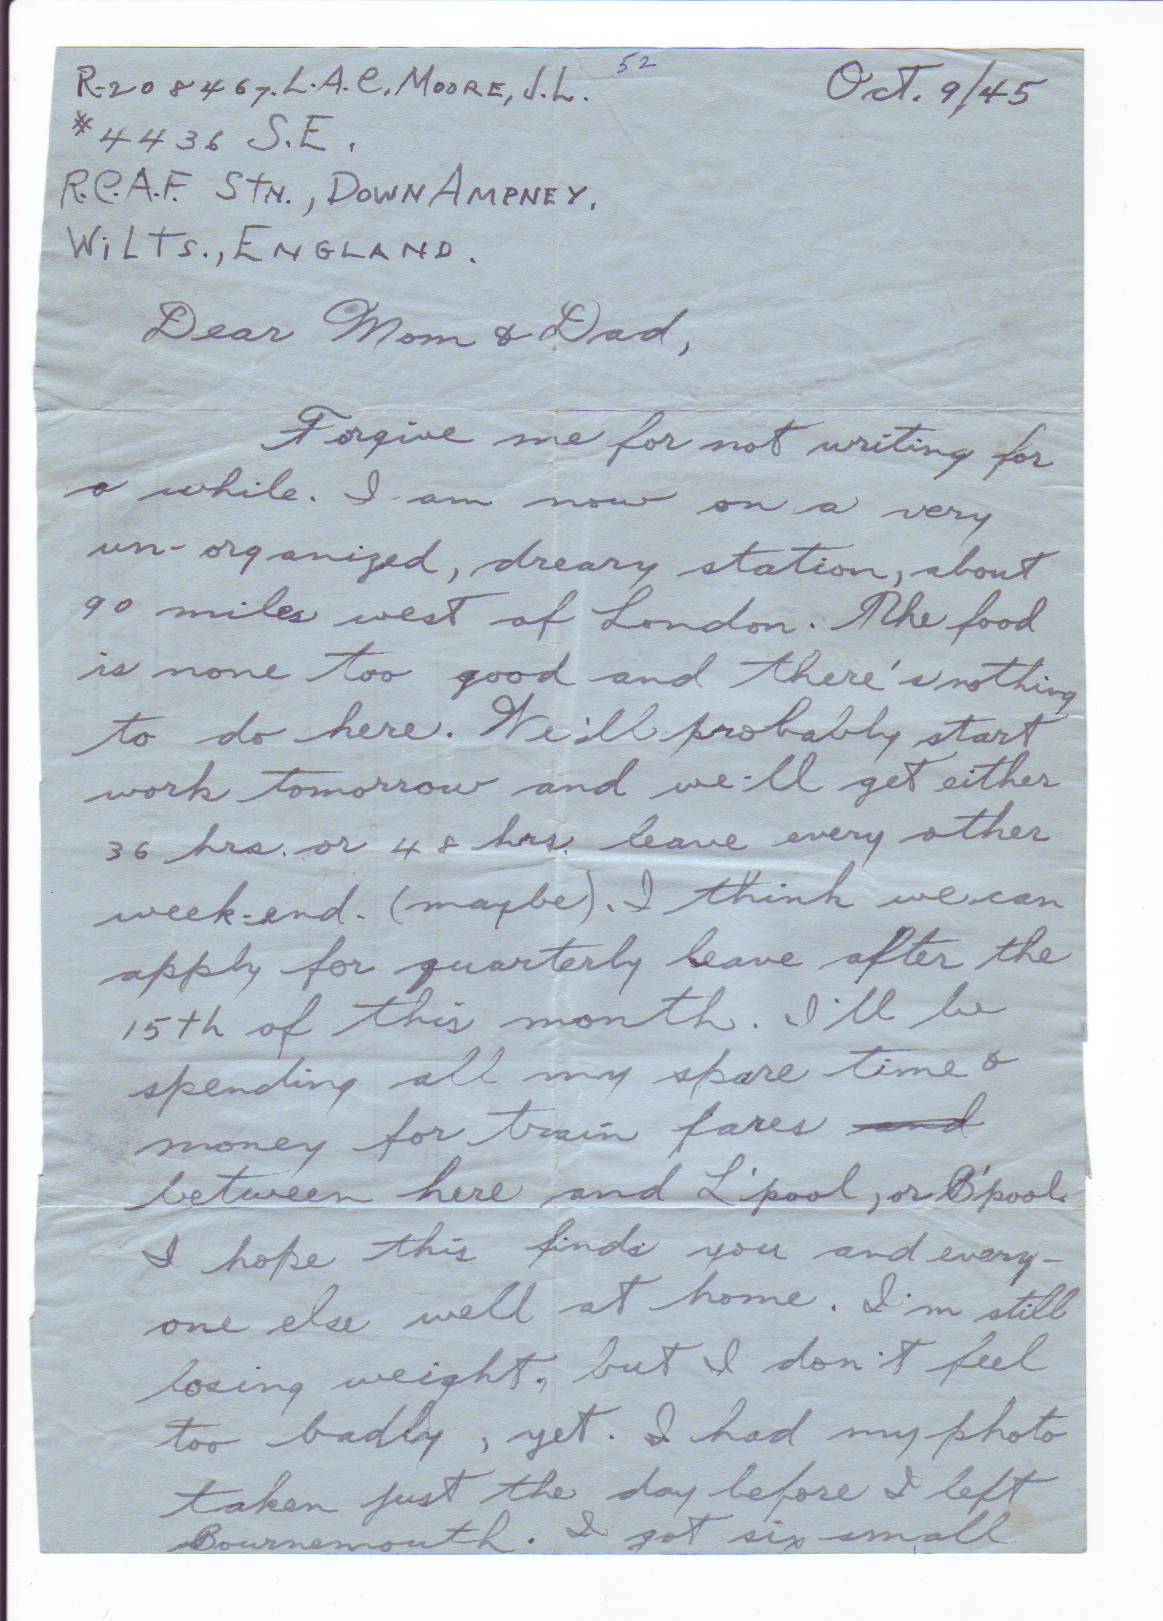 52
R-208467. L.A.C. MOORE, J.L. Oct. 9/45
#4436 S.E.
R.C.A.F. STN., DOWN AMPNEY.
WILTS., ENGLAND.
Dear Mom & Dad,
Forgive me for not writing for
a while. I am now on a very
un-organized, dreary station, about
90 miles west of London. The food
is none too good and there's nothing
to do here. We'll probably start
work tomorrow and we'll get either
36 hrs. or 48 hrs. leave every other
week-end. (maybe). I think we can
apply for quarterly leave after the
15th of this month. I'll be
spending all my spare time &
money for train fares and
between here and L'pool, or B'pool.
I hope this finds you and every-
one else well at home. I'm still
losing weight, but I don't feel
too badly, yet. I had my photo
taken just the day before I left
Bournemouth. I got six small